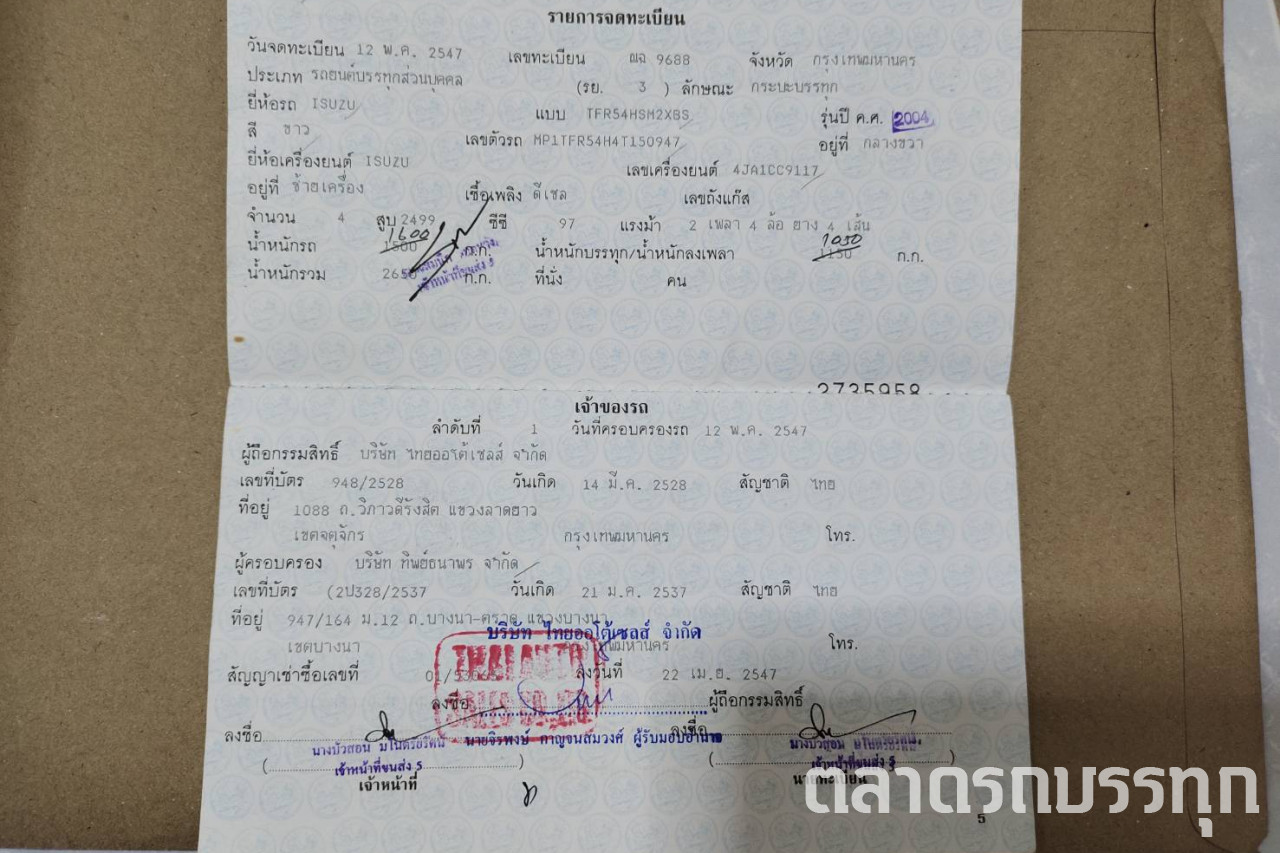 รายการจดทะเบียน
วันจดทะเบียน 12 พ.ค. 2547 เลขทะเบียน ผฉ 9688 จังหวัด กรุงเทพมหานคร
ประเภท รถยนต์บรรทุกส่วนบุคคล (รย. 3 ) ลักษณะ กระบะบรรทุก
ยี่ห้อรถ ISUZU แบบ TFR54HSM2XBS รุ่นปี ค.ศ. 2004
สี ขาว เลขตัวรถ MP1TFR54H4T150947 อยู่ที่ กลางขวา
ยี่ห้อเครื่องยนต์ ISUZU เลขเครื่องยนต์ 4JA1CC9117
อยู่ที่ ซ้ายเครื่อง เชื้อเพลิง ดีเซล เลขถังแก๊ส
จำนวน 4 สูบ 2499 ซีซี 97 แรงม้า 2 เพลา 4 ล้อ ยาง 4 เส้น
น้ำหนักรถ 1500 1600 ก.ก. น้ำหนักบรรทุก/น้ำหนักลงเพลา 1150 1050 ก.ก.
น้ำหนักรวม 2650 ก.ก. ที่นั่ง คน
เจ้าหน้าที่ขนส่ง 5
2735958
เจ้าของรถ
ลำดับที่ 1 วันที่ครอบครองรถ 12 พ.ค. 2547
ผู้ถือกรรมสิทธิ์ บริษัท ไทยออโต้เซลส์ จำกัด
เลขที่บัตร 948/2528 วันเกิด 14 มี.ค. 2528 สัญชาติ ไทย
ที่อยู่ 1088 ถ.วิภาวดีรังสิต แขวงลาดยาว
เขตจตุจักร กรุงเทพมหานคร โทร.
ผู้ครอบครอง บริษัท ทิพย์ธนาพร จำกัด
เลขที่บัตร (2ป328/2537 วันเกิด 21 ม.ค. 2537 สัญชาติ ไทย
ที่อยู่ 947/164 ม.12 ถ.บางนา-ตราด แขวงบางนา
บริษัท ไทยออโต้เซลส์ จำกัด
เขตบางนา กรุงเทพมหานคร โทร.
THAI AUTO SALES CO.,LTD.
สัญญาเช่าซื้อเลขที่ ลงวันที่ 22 เม.ย. 2547
ลงชื่อ ผู้ถือกรรมสิทธิ์
ลงชื่อ ลงชื่อ
นายจิรพงษ์ กาญจนสมวงศ์ ผู้รับมอบอำนาจ
เจ้าหน้าที่ขนส่ง 5 เจ้าหน้าที่ขนส่ง 5
เจ้าหน้าที่ นายทะเบียน
5
ตลาดรถบรรทุก